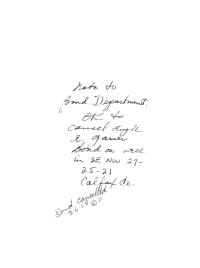 Note to
Bond Department.
OK to
cancel
bond on well
in SE NW 27-
25-21
Colfax Co.
Bond Cancelled